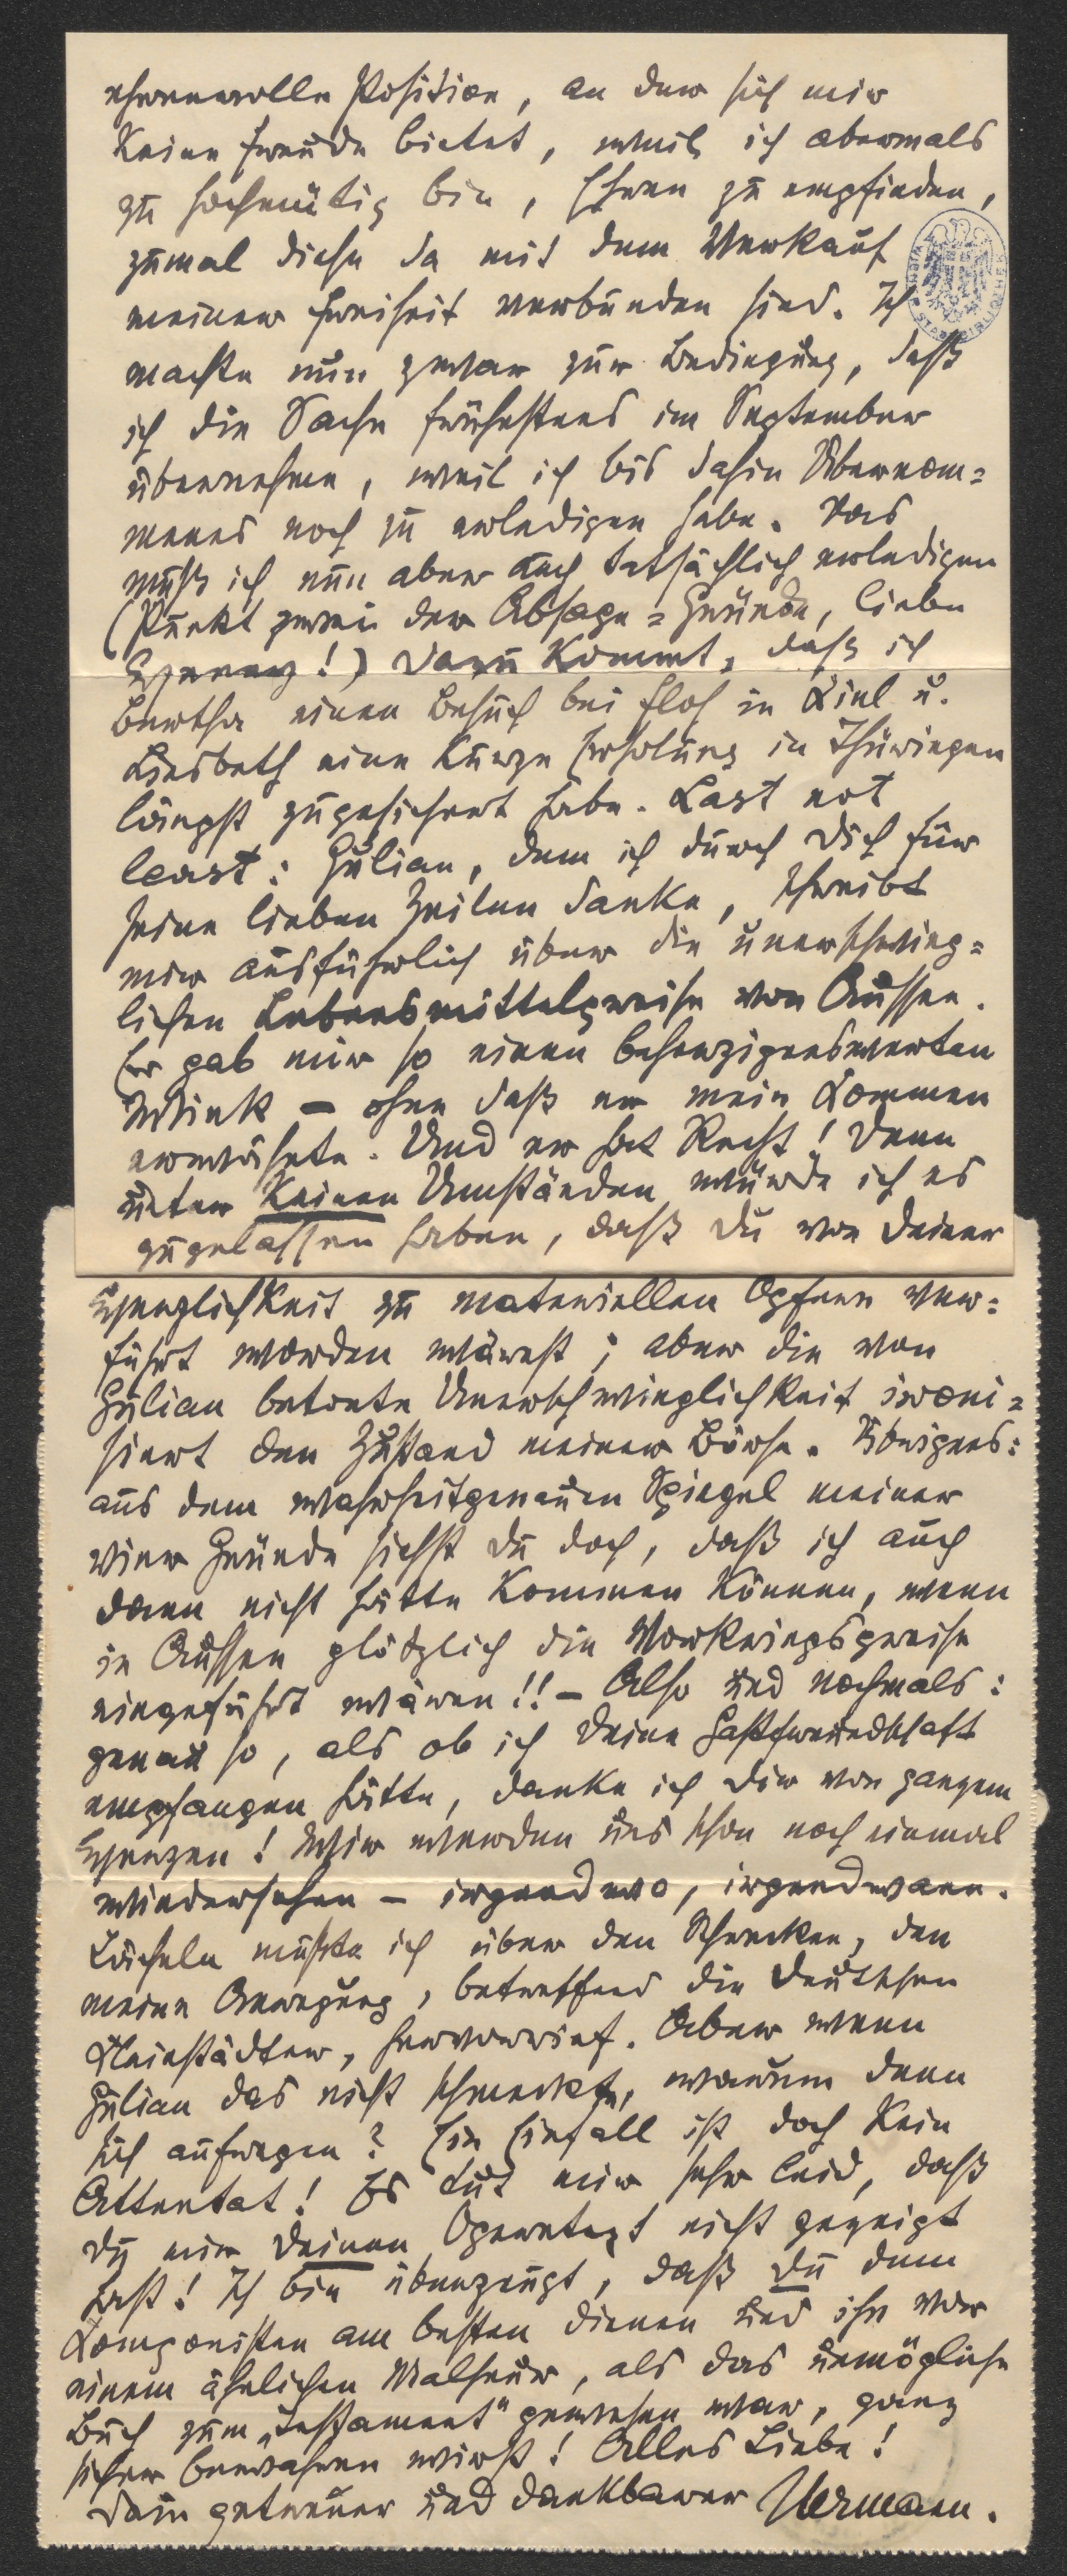 ehrenvolle Position, an der sich mir
keine Freude bietet, weil ich abermals
zu hochmütig bin, Ehren zu empfinden,
zumal diese da mit dem Verkauf
meiner Freiheit verbunden sind. Ich
machte nun zwar zur Bedingung, daß
ich die Sache frühestens im September
übernehme, weil ich bis dahin Übernom=
menes noch zu erledigen habe. Das
muß ich nun aber auch tatsächlich erledigen
(Punkt zwei der Absage=Gründe, lieber
Ehrenz!) Dazu kommt, daß ich
Bertha einen Besuch bei Floh in Kiel u.
Liesbeth eine kurze Erholung in Thüringen
längst zugesichert habe. Last not
least: Julian, dem ich durch Dich für
seine lieben Zeilen danke, schreibt
mir ausführlich über die unerschwing=
lichen Lebensmittelpreise von Aussee.
Er gab mir so einen beherzigenswerten
Wink – ohne daß er mein Kommen
erwähnte. Und er hat Recht! Denn
unter keinen Umständen würde ich es
zugelassen haben, daß Du von Deiner
Herzlichkeit zu materiellen Opfern ver=
führt worden wärest; aber die von
Julian betonte Unerschwinglichkeit ironi=
siert den Zustand meiner Börse. Übrigens:
aus dem wahrheitgenauen Spiegel meiner
vier Gründe siehst Du doch, daß ich auch
dann nicht hätte kommen können, wenn
in Aussee plötzlich die Vorkriegspreise
eingeführt wären!! – Also und nochmals:
genau so, als ob ich Deine Gastfreundschaft
empfangen hätte, danke ich Dir von ganzem
Herzen! Wir werden uns schon noch einmal
wiedersehen – irgendwo, irgendwann.
Lächeln mußte ich über den Schrecken, den
meine Anregung, betreffend die Deutschen
Kleinstädter, hervorrief. Aber wenn
Julian das nicht schmeckte, warum denn
sich aufregen? Ein Einfall ist doch kein
Attentat! Es tut mir sehr leid, daß
Du mir Deinen Operntext nicht gezeigt
hast! Ich bin überzeugt, daß Du dem
Komponisten am besten dienen und ihn vor
einem ähnlichen Malheur, als das unmögliche
Buch zum „Testament" gewesen war, ganz
sicher bewahren wirst! Alles Liebe!
Dein getreuer und dankbarer Hermann.